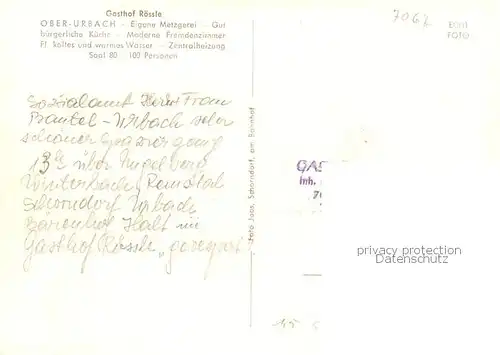 Gasthof Rössle
OBER-URBACH - Eigene Metzgerei - Gut
bürgerliche Küche - Moderne Fremdenzimmer
Fl. kaltes und warmes Wasser - Zentralheizung
Saal 80 - 100 Personen
7062
ECHT
FOTO
Sozialamt Herr Frau
Bantel - Urbach sehr
schöner Spaziergang
über Engelberg
Winterbach, Remstal
Schorndorf Urbach
Bärenhof Halt im
Gasthof Rössle
Foto Jaas, Schorndorf, am Bahnhof
GAS
Inh.
privacy protection
Datenschutz